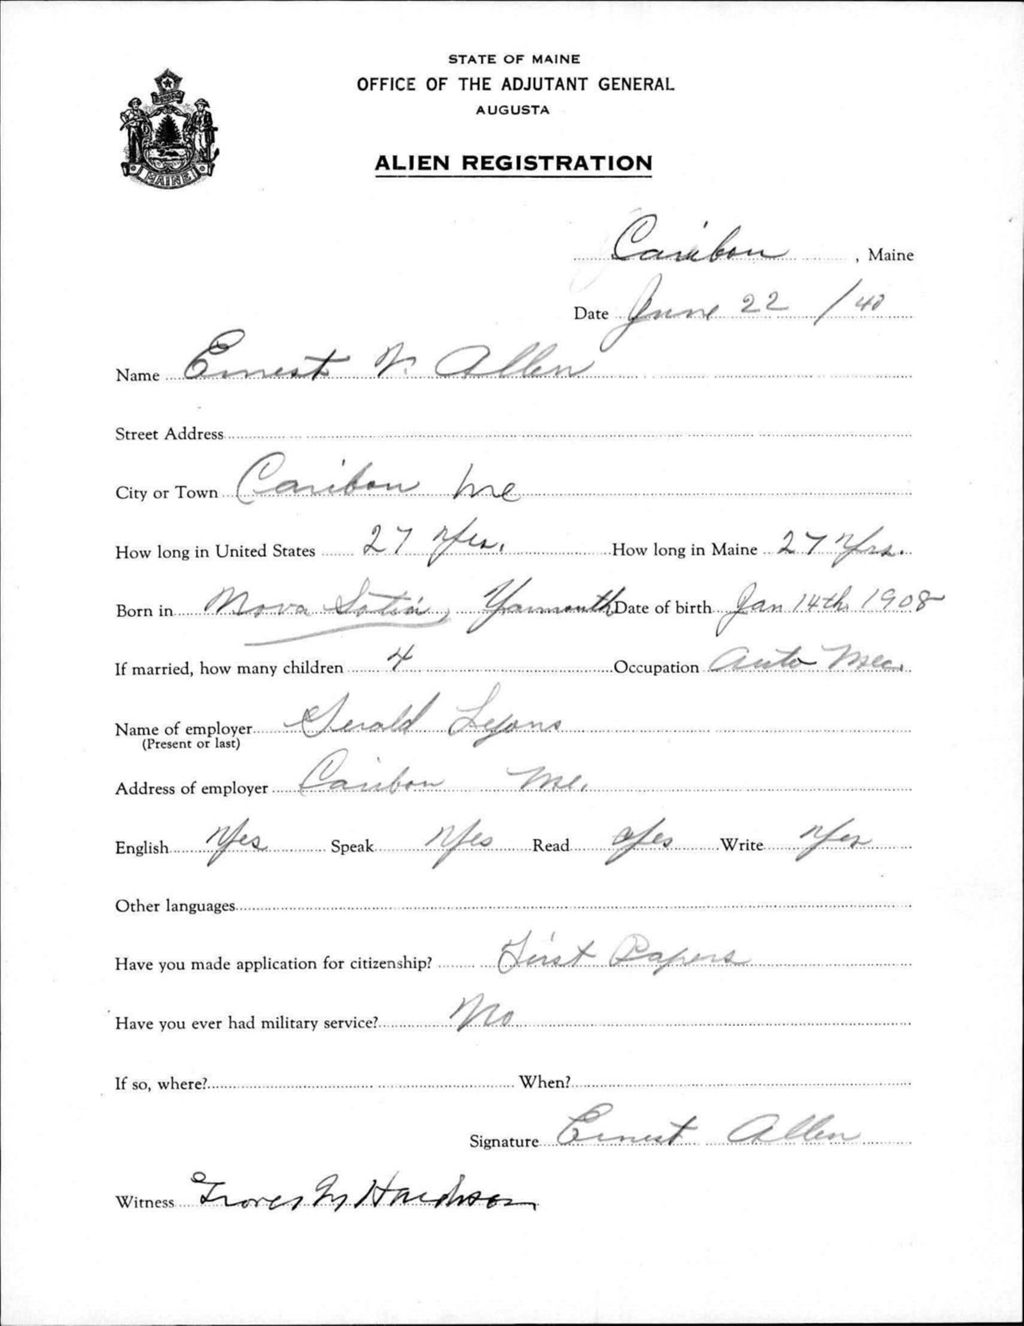 STATE OF MAINE
OFFICE OF THE ADJUTANT GENERAL
AUGUSTA
MAINE
ALIEN REGISTRATION
Caribou, Maine
Date June 22 / 40
Name Ernest V. Allen
Street Address
City or Town Caribou Me
How long in United States 27 Yrs. How long in Maine 27 Yrs.
Born in Nova Scotia, Yarmouth Date of birth Jan 14th 1908
If married, how many children 4 Occupation Auto Mec.
Name of employer Gerald Lyons
(Present or last)
Address of employer Caribou Me.
English Yes Speak Yes Read Yes Write Yes
Other languages
Have you made application for citizenship? First Papers
Have you ever had military service? No
If so, where? When?
Signature Ernest Allen
Witness